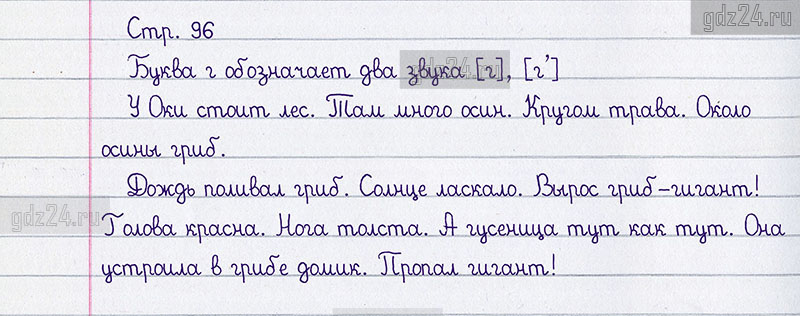 gdz24.ru
Стр. 96
Буква г обозначает два звука [г], [г']
gdz24.ru
У Оки стоит лес. Там много осин. Кругом трава. Около
осины гриб.
Дождь поливал гриб. Солнце ласкало. Вырос гриб-гигант!
gdz24.ru
Голова красна. Нога толста. А гусеница тут как тут. Она
устроила в грибе домик. Пропал гигант!